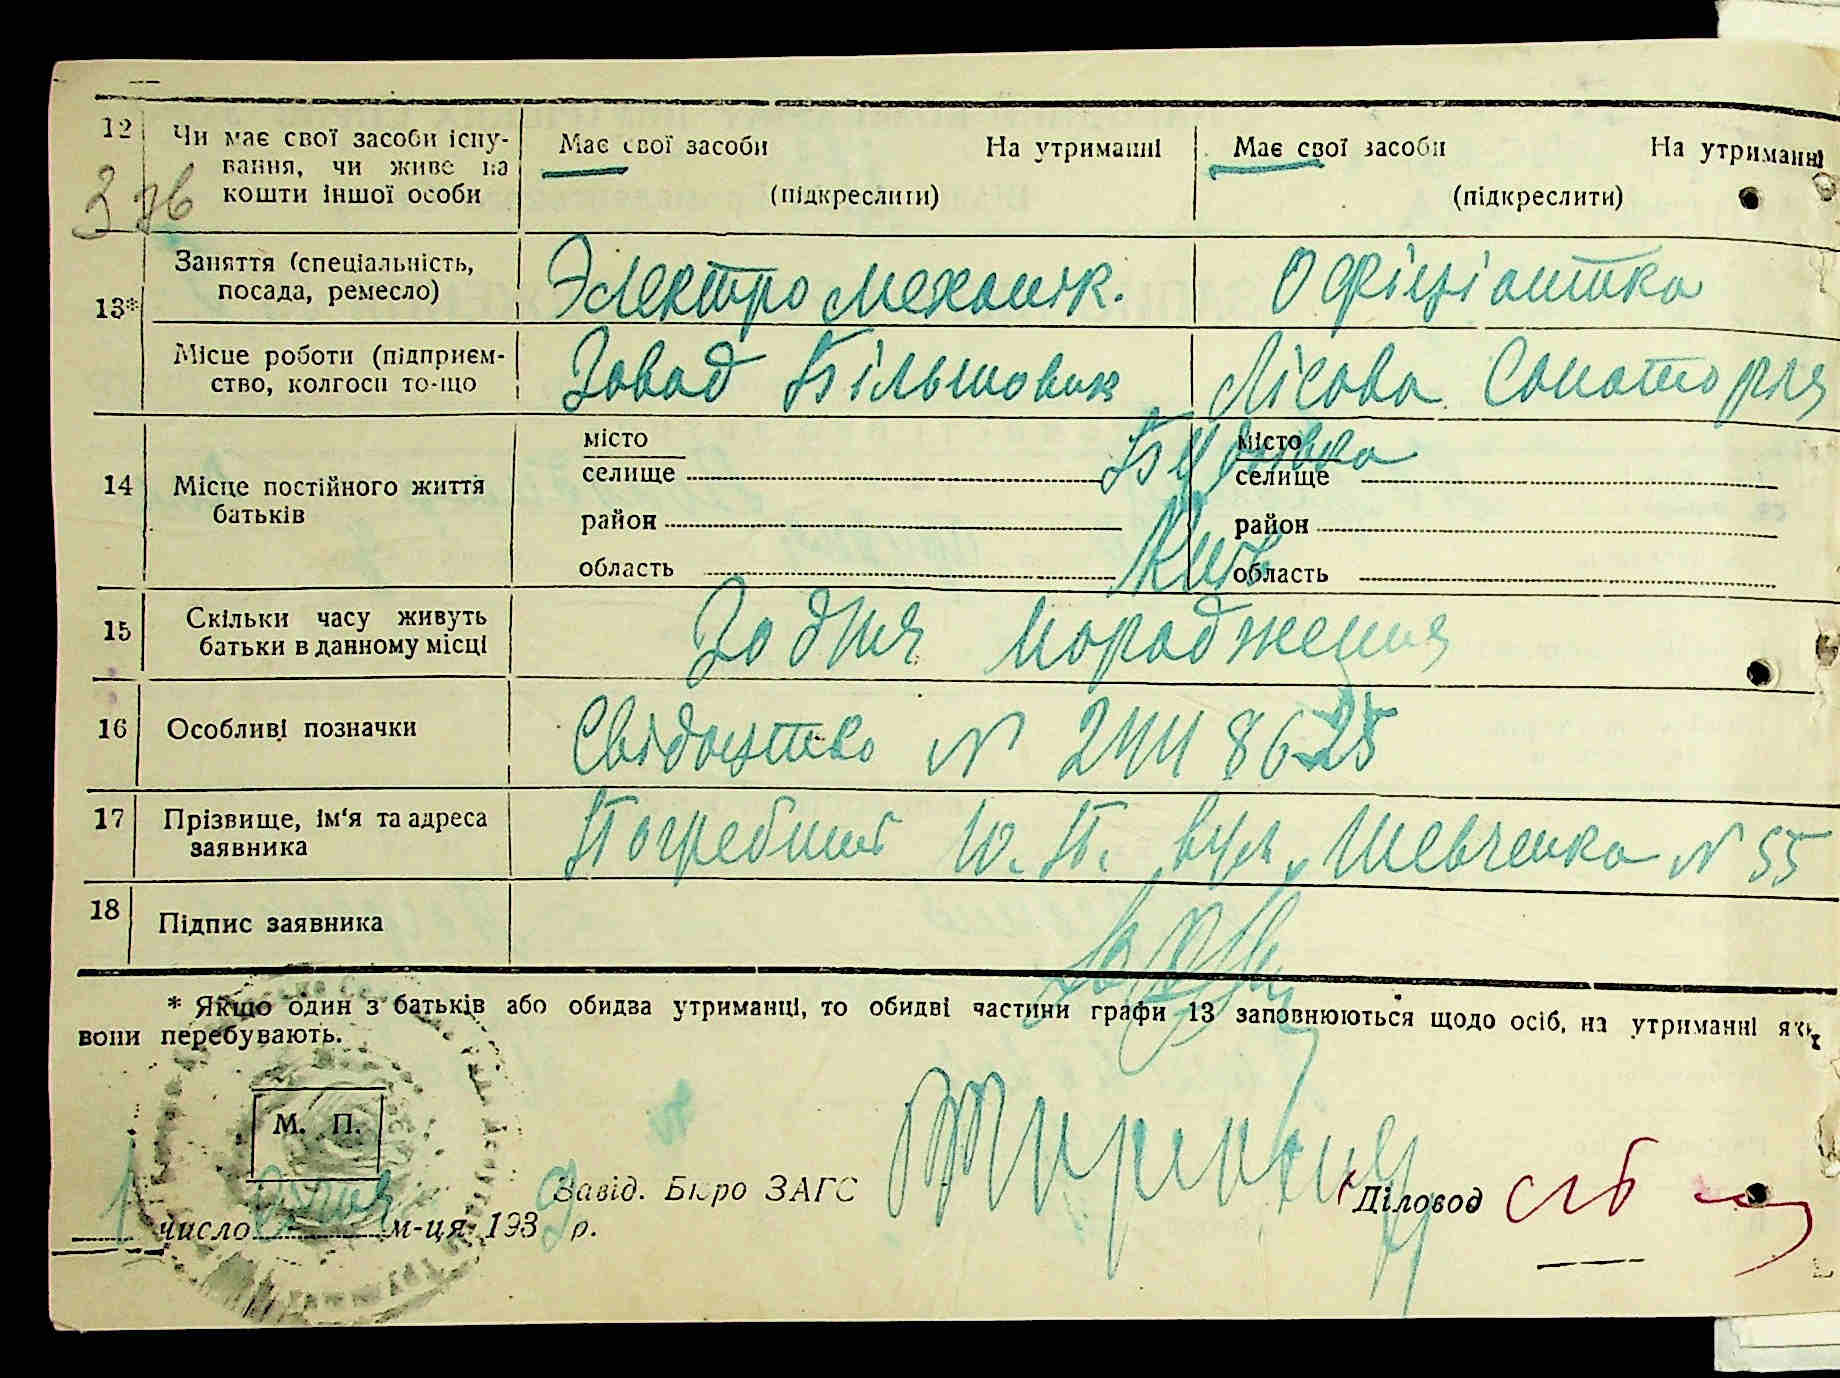 12 Чи має свої засоби існу-
вання, чи живе на
кошти іншої особи
Має свої засоби На утриманні
(підкреслити)
Має свої засоби На утриманні
(підкреслити)
13* Заняття (спеціальність,
посада, ремесло)
Электро механік.
Офіціантка
Місце роботи (підприєм-
ство, колгосп то-що
Завод Більшовик
Лісова Санатория
14 Місце постійного життя
батьків
місто
селище
район
область
місто
селище
район
область
Київ
15 Скільки часу живуть
батьки в данному місці
Зо дня нораджения
16 Особливі позначки
Свідоцтво N 244 8625
17 Прізвище, ім'я та адреса
заявника
Погребний Ю. П. вул. Шевченка N 55
18 Підпис заявника
* Якщо один з батьків або обидва утриманці, то обидві частини графи 13 заповнюються щодо осіб, на утриманні яких
вони перебувають.
М. П.
1 число м-ця 1939 р.
Завід. Бюро ЗАГС
Діловод